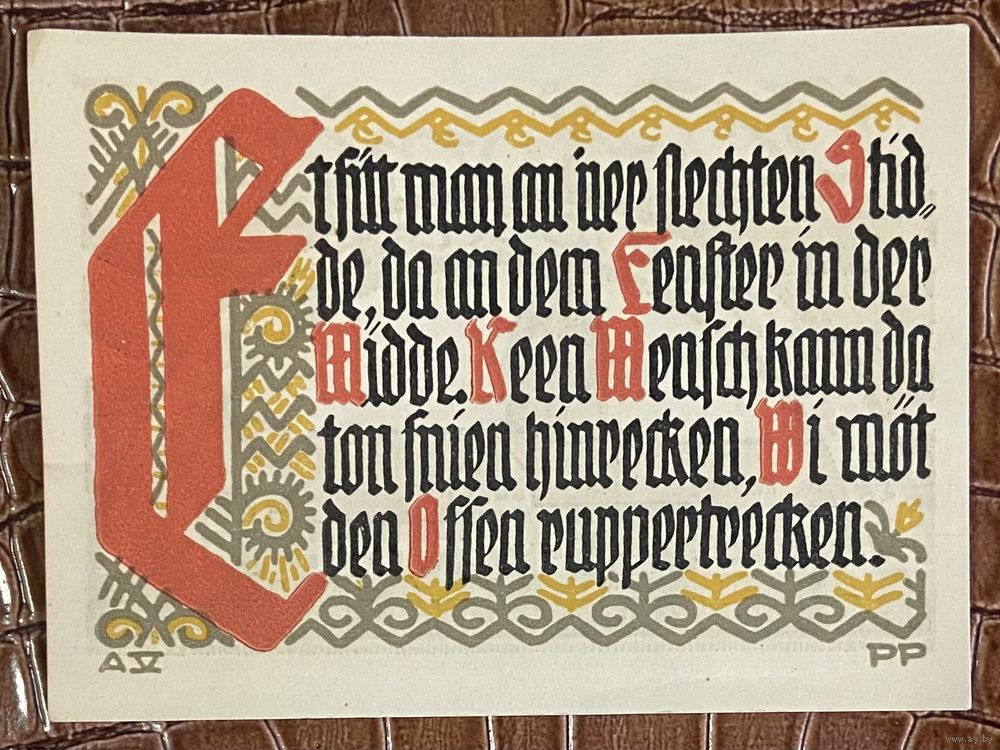 Et ſitt man an iner ſlechten Stid=
de, da an dem Fenſter in der
Midde. Keen Menſch kann da
ton ſnien hinrecken, Wi möt
den Oſſen ruppertrecken.
AV PP
www.ay.by